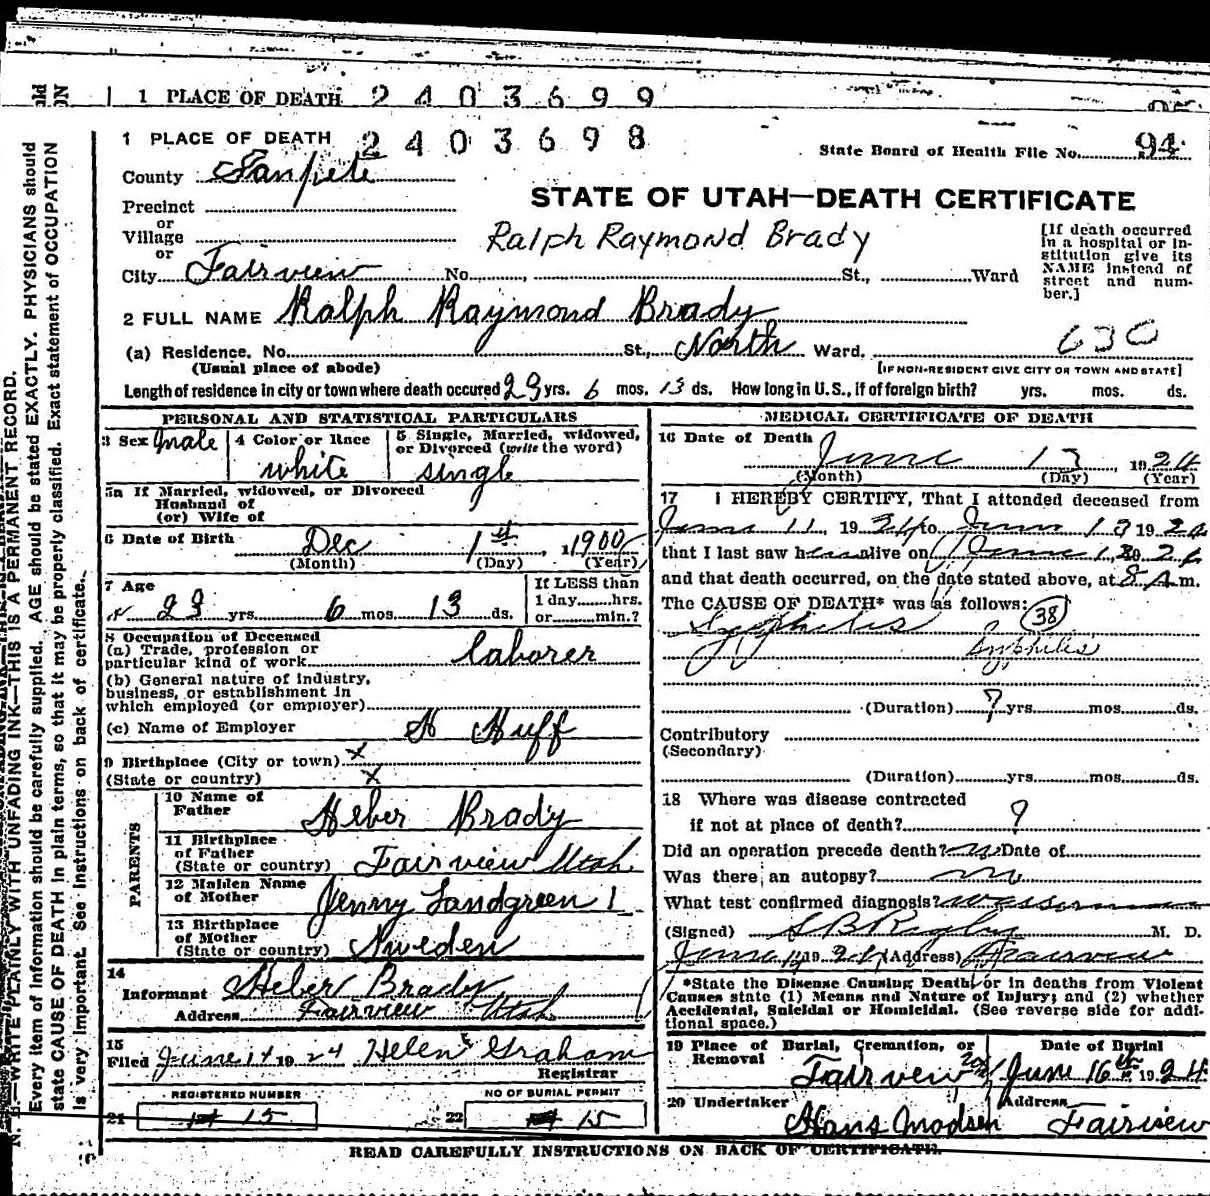 1 PLACE OF DEATH 2403699
1 PLACE OF DEATH 2403698
State Board of Health File No. 94
County Sanpete
STATE OF UTAH—DEATH CERTIFICATE
Precinct
or
Village
or
Ralph Raymond Brady
[If death occurred in a hospital or institution give its NAME instead of street and number.]
City Fairview No. , St., Ward
2 FULL NAME Ralph Raymond Brady
630
(a) Residence. No. St., North Ward.
(Usual place of abode) [IF NON-RESIDENT GIVE CITY OR TOWN AND STATE]
Length of residence in city or town where death occured 23 yrs. 6 mos. 13 ds. How long in U.S., if of foreign birth? yrs. mos. ds.
PERSONAL AND STATISTICAL PARTICULARS
3 Sex male 4 Color or Race white 5 Single, Married, widowed, or Divorced (write the word) single
5a If Married, widowed, or Divorced
Husband of
(or) Wife of
6 Date of Birth Dec 1st, 1900
(Month) (Day) (Year)
7 Age 23 yrs. 6 mos. 13 ds.
If LESS than
1 day hrs.
or min.?
8 Occupation of Deceased
(a) Trade, profession or
particular kind of work laborer
(b) General nature of industry,
business, or establishment in
which employed (or employer)
(c) Name of Employer H Huff
9 Birthplace (City or town) x
(State or country) x
PARENTS
10 Name of
Father Heber Brady
11 Birthplace
of Father
(State or country) Fairview Utah
12 Maiden Name
of Mother Jenny Landgreen
13 Birthplace
of Mother
(State or country) Sweden
14
Informant Heber Brady
Address Fairview Utah
15
Filed June 17 1924 Helen Graham
Registrar
REGISTERED NUMBER NO OF BURIAL PERMIT
21 15 22 15
MEDICAL CERTIFICATE OF DEATH
16 Date of Death June 13, 1924
(Month) (Day) (Year)
17 I HEREBY CERTIFY, That I attended deceased from
June 11, 1924 to June 13 1924
that I last saw him alive on June 13 24
and that death occurred, on the date stated above, at 8 A m.
The CAUSE OF DEATH* was as follows: 38
Syphilis
Syphilis
(Duration) ? yrs. mos. ds.
Contributory
(Secondary)
(Duration) yrs. mos. ds.
18 Where was disease contracted
if not at place of death? ?
Did an operation precede death? no Date of
Was there an autopsy? no
What test confirmed diagnosis? wasserman
(Signed) S B Rigby M. D.
June 1924 (Address) Fairview
*State the Disease Causing Death, or in deaths from Violent
Causes state (1) Means and Nature of Injury; and (2) whether
Accidental, Suicidal or Homicidal. (See reverse side for additional space.)
19 Place of Burial, Cremation, or
Removal Date of Burial
Fairview June 16th 1924
20 Undertaker Address
Hans Modsen Fairview
READ CAREFULLY INSTRUCTIONS ON BACK OF CERTIFICATE.
N. B.—WRITE PLAINLY WITH UNFADING INK—THIS IS A PERMANENT RECORD.
Every item of information should be carefully supplied. AGE should be stated EXACTLY. PHYSICIANS should
state CAUSE OF DEATH in plain terms, so that it may be properly classified. Exact statement of OCCUPATION
is very important. See instructions on back of certificate.